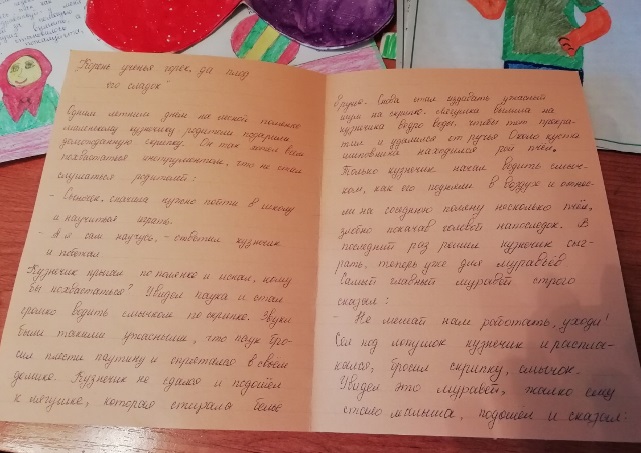 "Корень ученья горек, да плод
его сладок"
Одним летним днём на лесной полянке
маленькому кузнечику родители подарили
долгожданную скрипку. Он так хотел всем
похвастаться инструментом, что не стал
слушаться родителей:
- Сыночек, сначала нужно пойти в школу
и научиться играть.
- А я сам научусь, - ответил кузнечик
и побежал.
Кузнечик прыгал по полянке и искал, кому
бы похвастаться? Увидел паука и стал
громко водить смычком по скрипке. Звуки
были такими ужасными, что паук бро-
сил плести паутину и спрятался в своём
домике. Кузнечик не сдался и подошёл
к лягушке, которая стирала бельё
в ручье. Снова стал издавать ужасный
шум на скрипке. Лягушка вылила на
кузнечика ведро воды, чтобы тот прекра-
тил и удалился от ручья. Около куста
шиповника находился рой пчёл.
Только кузнечик начал водить смыч-
ком, как его подняли в воздух и отнес-
ли на соседнюю поляну несколько пчёл,
злобно покачав головой напоследок. В
последний раз решил кузнечик сыг-
рать, теперь уже для муравьёв.
Самый главный муравей строго
сказал:
- Не мешай нам работать, уходи!
Сел под лопушок кузнечик и распла-
кался, бросил скрипку, смычок.
Увидел это муравей, жалко ему
стало малыша, подошёл и сказал: